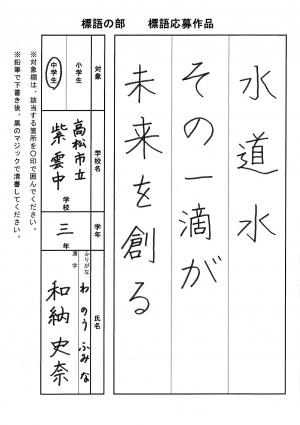 標語の部　　標語応募作品
水道水
その一滴が
未来を創る
対象
小学生
中学生
学校名
高松市立
紫雲中
学校
学年
三
年
氏名
ふりがな
わのう ふみな
漢字
和納 史奈
※対象欄は、該当する箇所を〇印で囲んでください。
※鉛筆で下書き後、黒のマジックで清書してください。